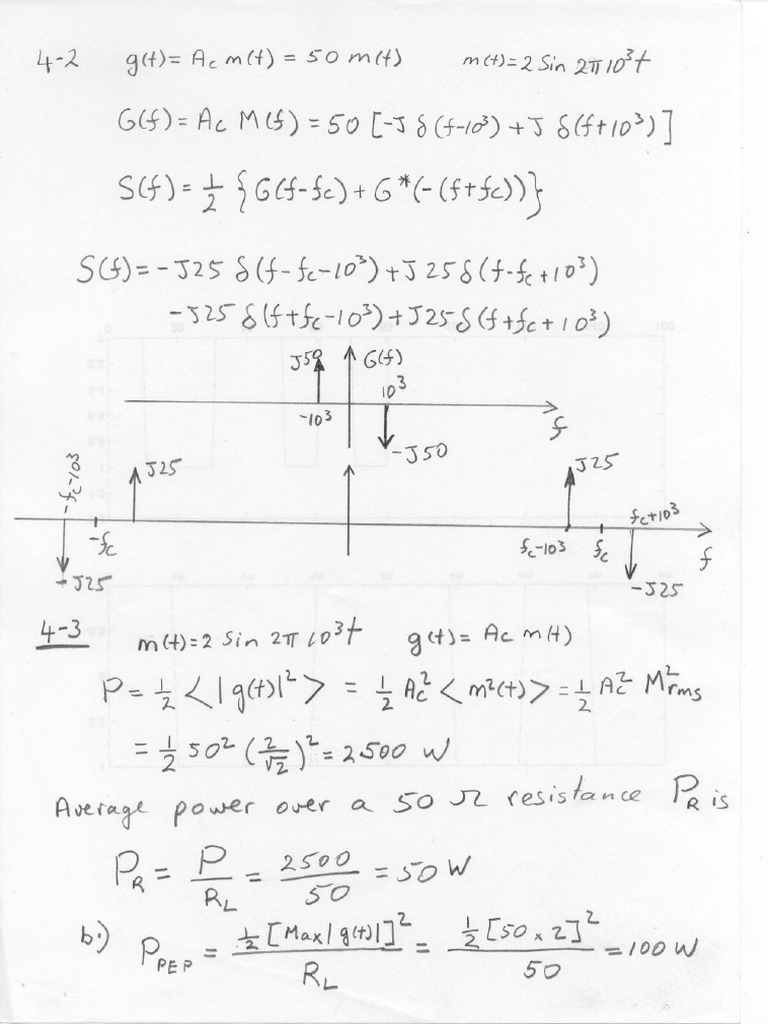 4-2 g(t) = Ac m(t) = 50 m(t) m(t) = 2 Sin 2π10³t
G(f) = Ac M(f) = 50 [-J δ(f-10³) + J δ(f+10³)]
S(f) = 1/2 {G(f-fc) + G*(-(f+fc))}
S(f) = -J25 δ(f-fc-10³) + J25 δ(f-fc+10³)
-J25 δ(f+fc-10³) + J25 δ(f+fc+10³)
J50 G(f)
10³
-10³
f
-J50
-fc-10³ J25 J25
fc+10³
-fc fc-10³ fc f
-J25 -J25
4-3 m(t) = 2 Sin 2π 10³t g(t) = Ac m(t)
P = 1/2 <|g(t)|²> = 1/2 Ac² <m²(t)> = 1/2 Ac² M²rms
= 1/2 50² (2/√2)² = 2500 W
Average power over a 50 Ω resistance PR is
PR = P/RL = 2500/50 = 50 W
b.) PPEP = 1/2 [Max|g(t)|]²/RL = 1/2 [50 x 2]²/50 = 100 W